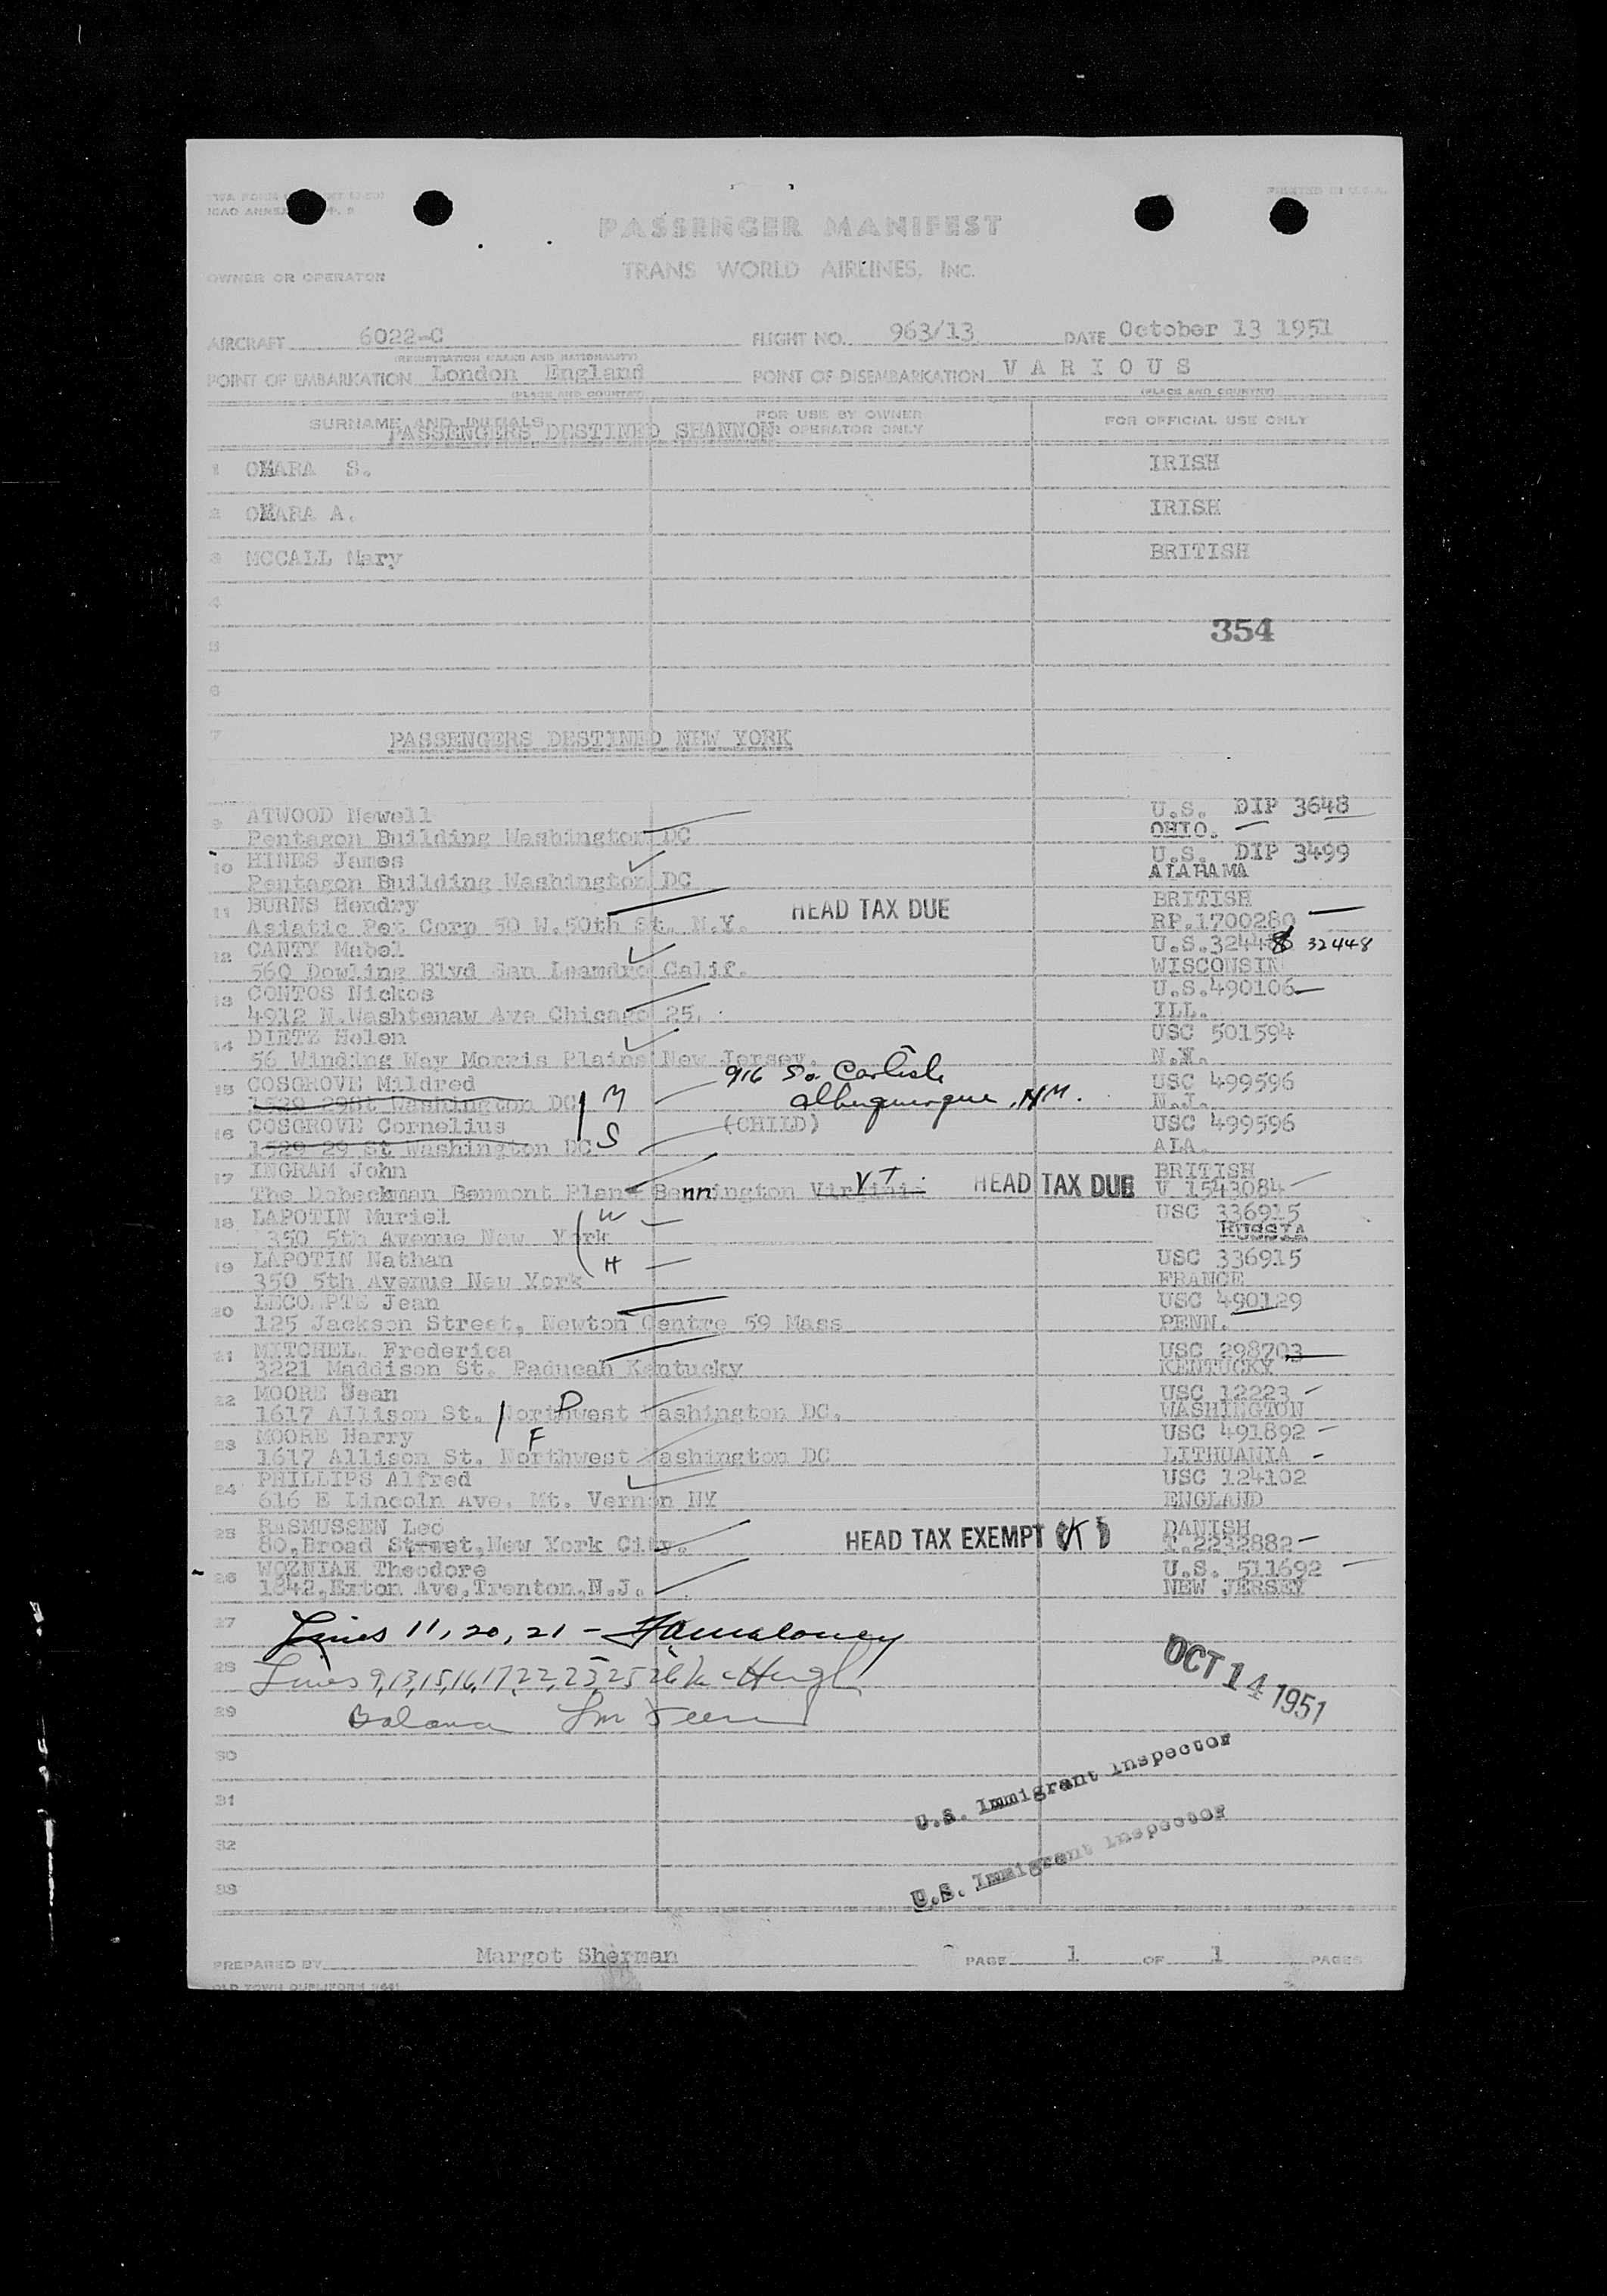 PRINTED IN U.S.A.
ICAO ANNEX
PASSENGER MANIFEST
TRANS WORLD AIRLINES, INC.
OWNER OR OPERATOR
AIRCRAFT 6022-C FLIGHT NO. 963/13 DATE October 13 1951
(REGISTRATION MARKS AND NATIONALITY)
POINT OF EMBARKATION London England POINT OF DISEMBARKATION V A R I O U S
(PLACE AND COUNTRY) (PLACE AND COUNTRY)
SURNAME AND INITIALS FOR USE BY OWNER OR OPERATOR ONLY FOR OFFICIAL USE ONLY
PASSENGERS DESTINED SHANNON
1 OMARA S. IRISH
2 OMARA A. IRISH
3 MCCALL Mary BRITISH
4
354
5
6
7 PASSENGERS DESTINED NEW YORK
9 ATWOOD Newell U.S. DIP 3648
Pentagon Building Washington DC OHIO.
10 HINES James U.S. DIP 3499
Pentagon Building Washington DC ALABAMA
11 BURNS Hendry HEAD TAX DUE BRITISH
Asiatic Pet Corp 50 W.50th St. N.Y. RP.1700280
12 CANTY Mabel U.S.32448 32448
560 Dowling Blvd San Leandro Calif. WISCONSIN
13 CONTOS Nickos U.S.490106
4912 N.Washtenaw Ave Chicago 25. ILL.
14 DIETZ Helen USC 501594
56 Winding Way Morris Plains New Jersey. N.Y.
15 COSGROVE Mildred 916 So. Carlisle USC 499596
1529 29St Washington DC M Albuquerque, NM. N.J.
16 COSGROVE Cornelius (CHILD) USC 499596
1529 29 St Washington DC S ALA.
17 INGRAM John VT. HEAD TAX DUE BRITISH
The Dobeckman Benmont Plant Bennington Virginia V 1543084
18 LAPOTIN Muriel W USC 336915
350 5th Avenue New York RUSSIA
19 LAPOTIN Nathan H USC 336915
350 5th Avenue New York FRANCE
20 LECOMPTE Jean USC 490129
125 Jackson Street, Newton Centre 59 Mass PENN.
21 MITCHELL Frederica USC 298703
3221 Maddison St. Paducah Kentucky KENTUCKY
22 MOORE Dean D USC 12223
1617 Allison St. Northwest Washington DC. WASHINGTON
23 MOORE Harry F USC 491892
1617 Allison St. Northwest Washington DC LITHUANIA
24 PHILLIPS Alfred USC 124102
616 E Lincoln Ave. Mt. Vernon NY ENGLAND
25 RASMUSSEN Leo HEAD TAX EXEMPT (K) DANISH
80,Broad Street,New York City. T.2232882
26 WOZNIAK Theodore U.S. 511692
1842,Exton Ave,Trenton.N.J. NEW JERSEY
27 Lines 11, 20, 21 -
28 Lines 9,13,15,16,17,22,23,25 26 McHugh
OCT 14 1951
29 Balance
30
U.S. Immigrant Inspector
31
32
U.S. Immigrant Inspector
33
PREPARED BY Margot Sherman PAGE 1 OF 1 PAGES